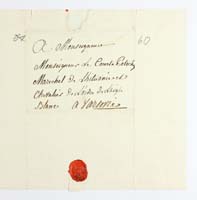 60
A Monseigneur
Monseigneur Le Comte Potocki
Marechal de Lithuanie et
Chevalier de l'ordre de l'aigle
Blanc a Varsovie